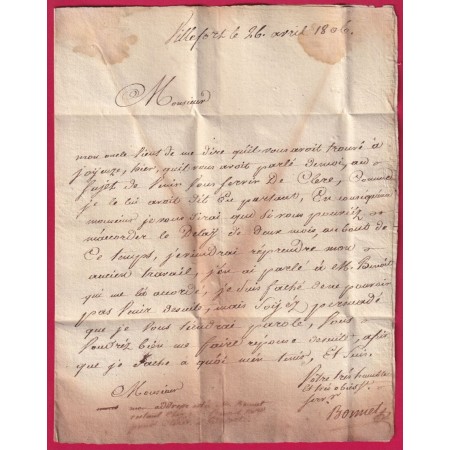 Villefort le 26. avril 1806.
Monsieur
mon oncle vient de me dire qu'il vous avoit trouvé à
joyeuze, hier, qu'il vous avoit parlé de moi, au
sujet de venir vous servir De Clerc, comme
je le lui avois dit En partant, En conséquence
monsieur je vous dirai que si vous pouviez
m'accorder le Delay de deux mois, au bout de
Ce temps, je viendrai réprendre mon
ancien travail, j'en ai parlé à M. Benoit
qui me l'a accordé, je suis faché de ne pouvoir
pas venir desuite, mais soyez persuadé
que je vous tiendrai parole, vous
voudrez bien me faire reponse desuite, afin
que je sache a quoi m'en tenir, Et suis.
Monsieur
Votre très humble
et très obéisst.
servr.
mon addresse est
Bonnet